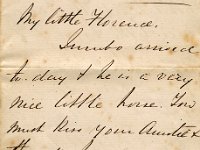 My little Florence.
Jumbo arrived
to day & he is a very
nice little horse. You
must kiss your Auntie &